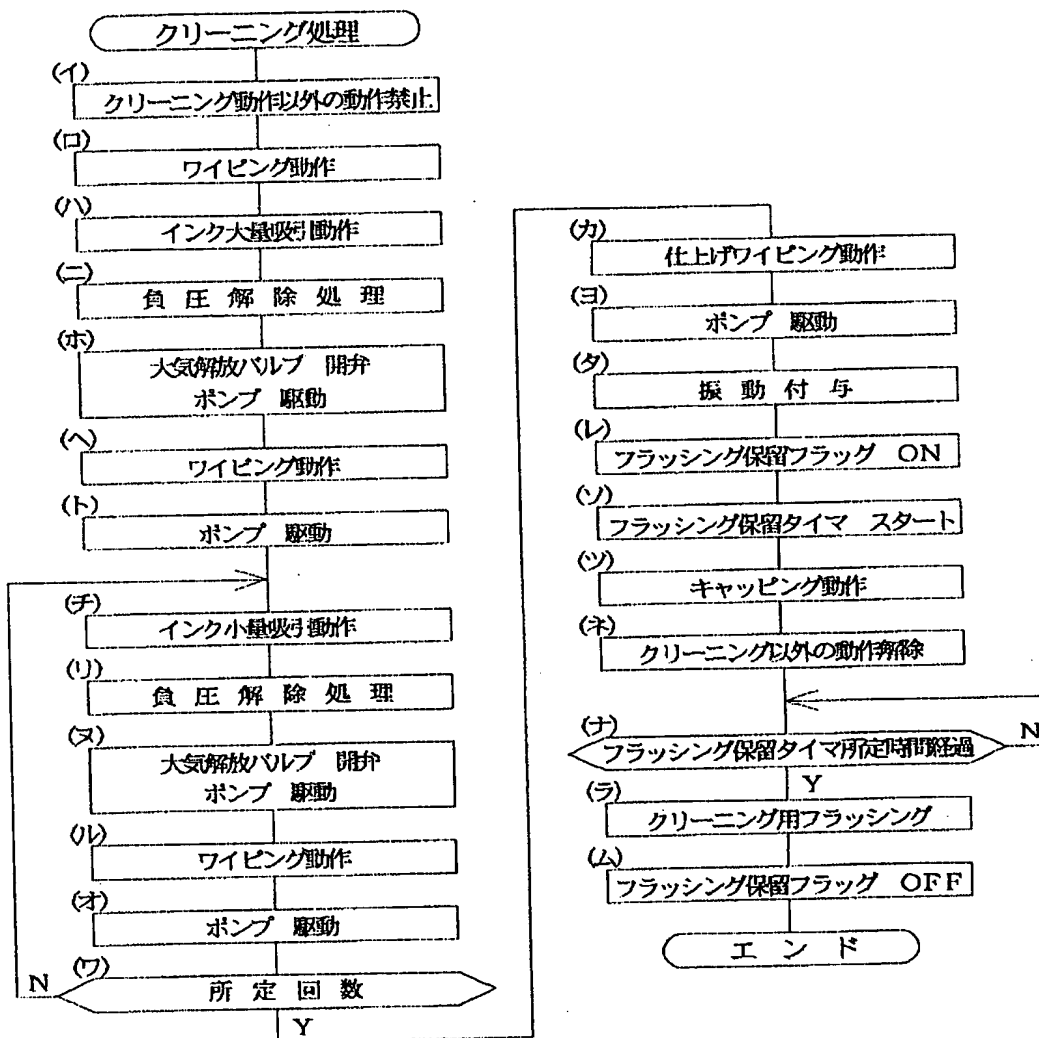 クリーニング処理
(イ)
クリーニング動作以外の動作禁止
(ロ)
ワイピング動作
(ハ)
インク大量吸引動作
(ニ)
負圧解除処理
(ホ)
大気解放バルブ 開弁
ポンプ 駆動
(ヘ)
ワイピング動作
(ト)
ポンプ 駆動
(チ)
インク小量吸引動作
(リ)
負圧解除処理
(ヌ)
大気解放バルブ 開弁
ポンプ 駆動
(ル)
ワイピング動作
(オ)
ポンプ 駆動
(ワ)
所定回数
N
Y
(カ)
仕上げワイピング動作
(ヨ)
ポンプ 駆動
(タ)
振動付与
(レ)
フラッシング保留フラッグ ON
(ソ)
フラッシング保留タイマ スタート
(ツ)
キャッピング動作
(ネ)
クリーニング以外の動作解除
(ナ)
フラッシング保留タイマ所定時間経過
N
Y
(ラ)
クリーニング用フラッシング
(ム)
フラッシング保留フラッグ OFF
エンド